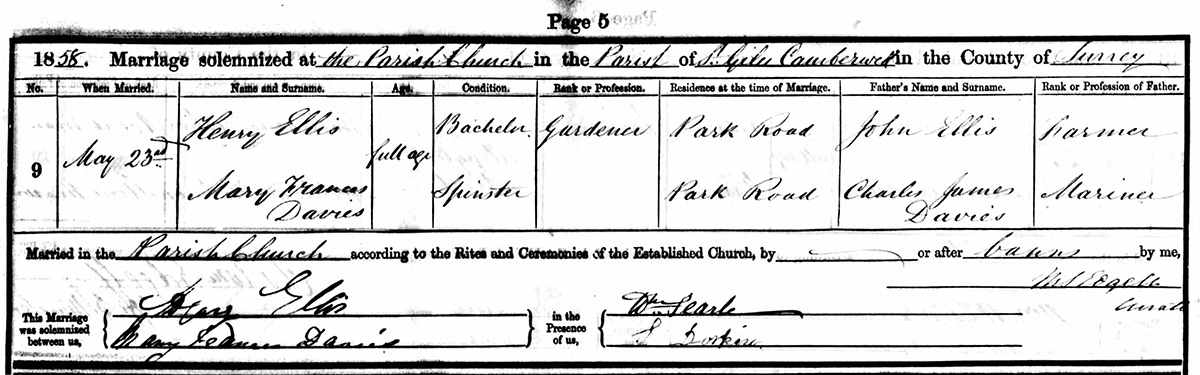 Page 5
1858. Marriage solemnized at the Parish Church in the Parish of St Giles Camberwell in the County of Surrey
No. When Married. Name and Surname. Age. Condition. Rank or Profession. Residence at the time of Marriage. Father's Name and Surname. Rank or Profession of Father.
Henry Ellis Bachelor Gardener Park Road John Ellis Farmer
9 May 23rd full age
Mary Frances Spinster Park Road Charles James Mariner
Davies Davies
Married in the Parish Church according to the Rites and Ceremonies of the Established Church, by or after banns by me,
Curate
This Marriage was solemnized between us, Henry Ellis in the Presence of us, Wm Searle
Mary Frances Davies